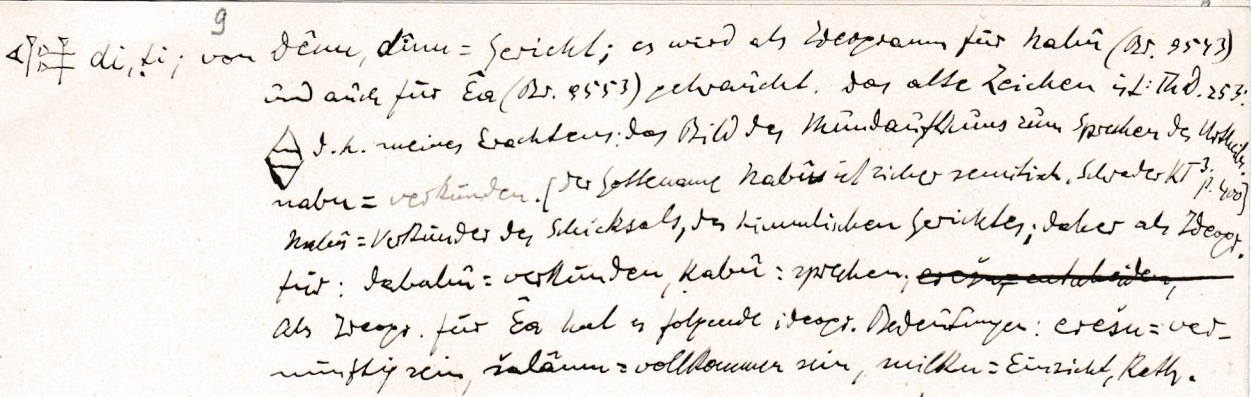 9
di, ṭi; von dênu, dînu = Gericht; es wird als Ideogramm für Nabû (Br. 9543)
und auch für Êa (Br. 9553) gebraucht. Das alte Zeichen ist: ThD. 253:
d.h. meines Erachtens: das Bild des Mundaufthuns zum Sprechen des Urtheils.
nabu = verkünden. [Der Gottename Nabû ist sicher semitisch, Schrader KT³, p. 400]
Nabû = Verkünder des Schicksals, des himmlischen Gerichtes; daher als Ideogr.
für: dabābu = verkünden, kabû = sprechen,
Als Ideogr. für Êa hat es folgende ideogr. Bedeutungen: erešu = ver-
nünftig sein, šalâmu = vollkommen sein, milku = Einsicht, Rath.